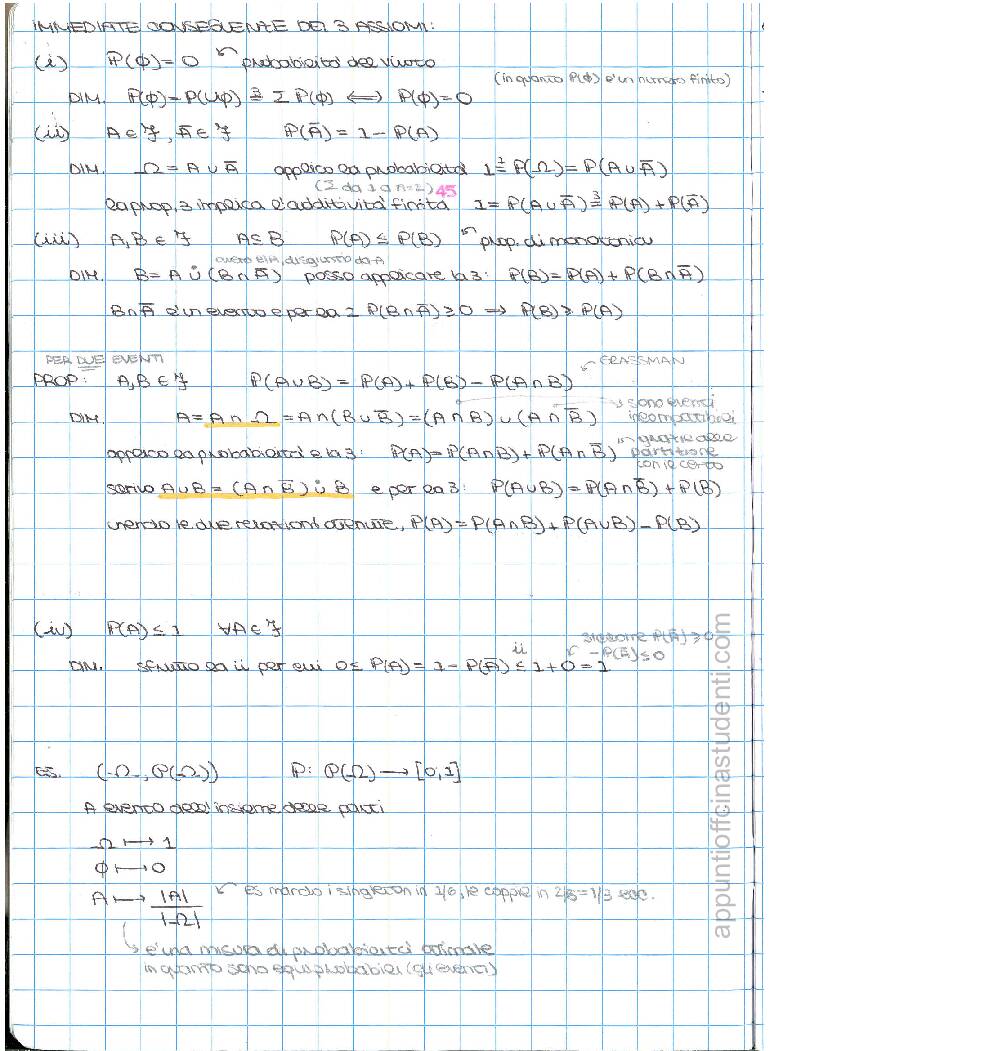 IMMEDIATE CONSEGUENZE DEI 3 ASSIOMI:
(i) P(∅) = 0 ↙ probabilità del vuoto
(in quanto P(∅) è un numero finito)
DIM. P(∅) = P(∪∅) ≟³ Σ P(∅) ⟺ P(∅) = 0
(ii) A ∈ F, Ā ∈ F P(Ā) = 1 - P(A)
DIM. Ω = A ∪ Ā applico la probabilità 1 =² P(Ω) = P(A ∪ Ā)
(Σ da 1 a n=2) 45
la prop. 3 implica l'additività finita 1 = P(A ∪ Ā) =³ P(A) + P(Ā)
(iii) A, B ∈ F A ⊆ B P(A) ≤ P(B) prop. di monotonia
ovvero B\A, disgiunto da A
DIM. B = A ∪̇ (B ∩ Ā) posso applicare la 3: P(B) = P(A) + P(B ∩ Ā)
B ∩ Ā è un evento e per la 1 P(B ∩ Ā) ≥ 0 ⟹ P(B) ≥ P(A)
PER DUE EVENTI
↙ GRASSMAN
PROP: A, B ∈ F P(A ∪ B) = P(A) + P(B) - P(A ∩ B)
→ sono eventi
DIM. A = A ∩ Ω = A ∩ (B ∪ B̄) = (A ∩ B) ∪ (A ∩ B̄) incompatibili
in quanto alle
applico la probabilità e la 3: P(A) = P(A ∩ B) + P(A ∩ B̄) partizione
con il certo
scrivo A ∪ B = (A ∩ B̄) ∪̇ B e per la 3: P(A ∪ B) = P(A ∩ B̄) + P(B)
unendo le due relazioni ottenute, P(A) = P(A ∩ B) + P(A ∪ B) - P(B)
(iv) P(A) ≤ 1 ∀A ∈ F
siccome P(Ā) ≥ 0
-P(Ā) ≤ 0
ii
DIM. sfrutto la ii per cui 0 ≤ P(A) = 1 - P(Ā) ≤ 1 + 0 = 1
ES. (Ω, P(Ω)) P: P(Ω) → [0,1]
A evento dell'insieme delle parti
Ω ↦ 1
∅ ↦ 0
A ↦ |A| / |Ω| ↙ es mando i singleton in 1/6, le coppie in 2/6 = 1/3 ecc.
↳ è una misura di probabilità ottimale
in quanto sono equiprobabili (gli eventi)
appuntioffcinastudenti.com